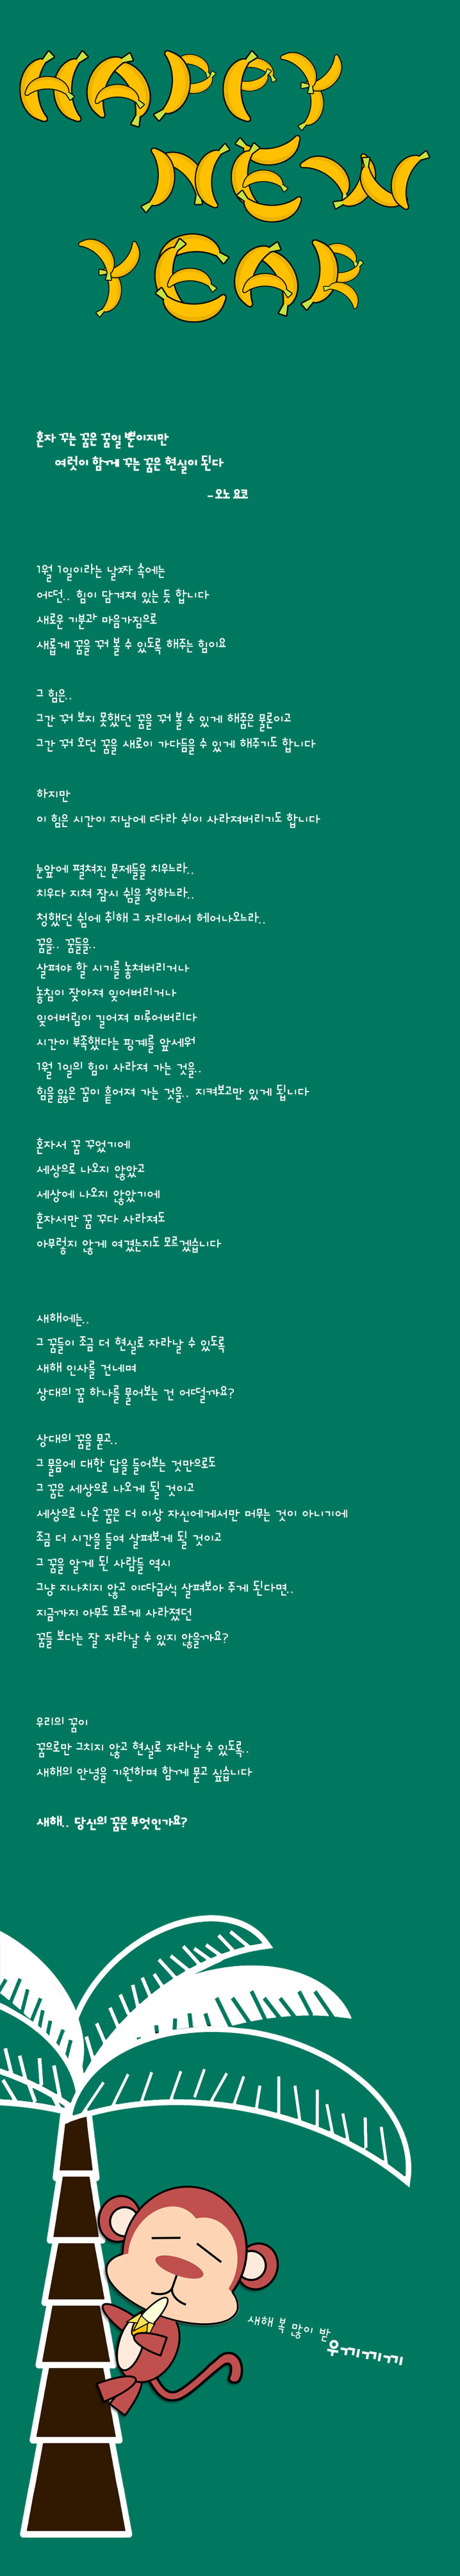 HAPPY
NEW
YEAR
혼자 꾸는 꿈은 꿈일 뿐이지만
여럿이 함께 꾸는 꿈은 현실이 된다
- 오노 요코
1월 1일이라는 날짜 속에는
어떤.. 힘이 담겨져 있는 듯 합니다
새로운 기분과 마음가짐으로
새롭게 꿈을 꿔 볼 수 있도록 해주는 힘이요
그 힘은..
그간 꿔 보지 못했던 꿈을 꿔 볼 수 있게 해줌은 물론이고
그간 꿔 오던 꿈을 새로이 가다듬을 수 있게 해주기도 합니다
하지만
이 힘은 시간이 지남에 따라 쉬이 사라져버리기도 합니다
눈앞에 펼쳐진 문제들을 치우느라..
치우다 지쳐 잠시 쉼을 청하느라..
청했던 쉼에 취해 그 자리에서 헤어나오느라..
꿈을.. 꿈들을..
살펴야 할 시기를 놓쳐버리거나
놓침이 잦아져 잊어버리거나
잊어버림이 길어져 미루어버리다
시간이 부족했다는 핑계를 앞세워
1월 1일의 힘이 사라져 가는 것을..
힘을 잃은 꿈이 흩어져 가는 것을.. 지켜보고만 있게 됩니다
혼자서 꿈 꾸었기에
세상으로 나오지 않았고
세상에 나오지 않았기에
혼자서만 꿈 꾸다 사라져도
아무렇지 않게 여겼는지도 모르겠습니다
새해에는..
그 꿈들이 조금 더 현실로 자라날 수 있도록
새해 인사를 건네며
상대의 꿈 하나를 물어보는 건 어떨까요?
상대의 꿈을 묻고..
그 물음에 대한 답을 들어보는 것만으로도
그 꿈은 세상으로 나오게 될 것이고
세상으로 나온 꿈은 더 이상 자신에게서만 머무는 것이 아니기에
조금 더 시간을 들여 살펴보게 될 것이고
그 꿈을 알게 된 사람들 역시
그냥 지나치지 않고 이따금씩 살펴보아 주게 된다면..
지금까지 아무도 모르게 사라졌던
꿈들 보다는 잘 자라날 수 있지 않을까요?
우리의 꿈이
꿈으로만 그치지 않고 현실로 자라날 수 있도록..
새해의 안녕을 기원하며 함께 묻고 싶습니다
새해.. 당신의 꿈은 무엇인가요?
새해 복 많이 받
우끼끼끼